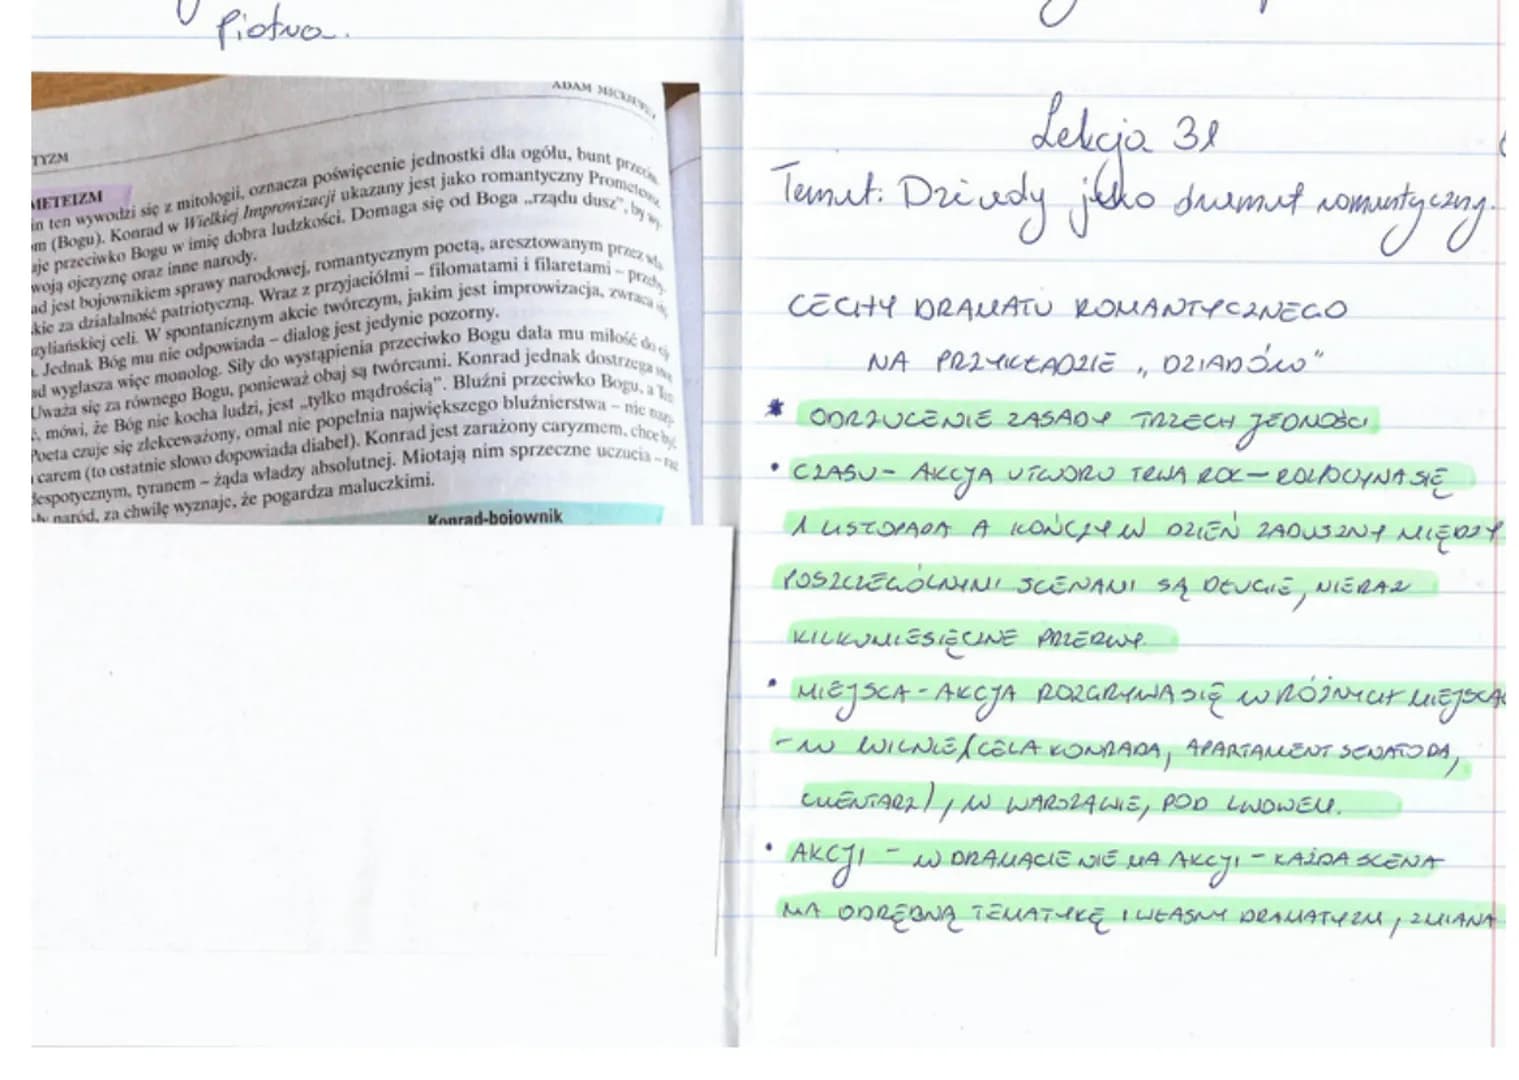 Piotra.
ADAM MICKIEWICZ
TYZM
METEIZM
in ten wywodzi się z mitologii, oznacza poświęcenie jednostki dla ogółu, bunt przeciw
m (Bogu). Konrad w Wielkiej Improwizacji ukazany jest jako romantyczny Prometeusz
uje przeciwko Bogu w imię dobra ludzkości. Domaga się od Boga „rządu dusz", by
woją ojczyznę oraz inne narody.
ad jest bojownikiem sprawy narodowej, romantycznym poetą, aresztowanym przez
kie za działalność patriotyczną. Wraz z przyjaciółmi – filomatami i filaretami –
zyliańskiej celi. W spontanicznym akcie twórczym, jakim jest improwizacja, zwraca
. Jednak Bóg mu nie odpowiada – dialog jest jedynie pozorny.
ad wygłasza więc monolog. Siły do wystąpienia przeciwko Bogu dała mu miłość do
Uważa się za równego Bogu, ponieważ obaj są twórcami. Konrad jednak dostrzega
ć, mówi, że Bóg nie kocha ludzi, jest „tylko mądrością". Bluźni przeciwko Bogu, a
Poeta czuje się zlekceważony, omal nie popełnia największego bluźnierstwa – nie
carem (to ostatnie słowo dopowiada diabeł). Konrad jest zarażony caryzmem, chce
despotycznym, tyranem – żąda władzy absolutnej. Miotają nim sprzeczne uczucia –
naród, za chwilę wyznaje, że pogardza maluczkimi.
Konrad-bojownik
Lekcja 31
Temat: Dziady jako dramat romantyczny.
CECHY DRAMATU ROMANTYCZNEGO
NA PRZYKŁADZIE „DZIADÓW"
* ODRZUCENIE ZASADY TRZECH JEDNOŚCI
• CZASU - AKCJA UTWORU TRWA ROK - ROZPOCZYNA SIĘ
1 LISTOPADA A KOŃCZY W DZIEŃ ZADUSZNY MIĘDZY
POSZCZEGÓLNYMI SCENAMI SĄ DŁUGIE, NIERAZ
KILKUMIESIĘCZNE PRZERWY.
• MIEJSCA - AKCJA ROZGRYWA SIĘ W RÓŻNYCH MIEJSCA
- W WILNIE (CELA KONRADA, APARTAMENT SENATORA,
CMENTARZ), W WARSZAWIE, POD LWOWEM.
• AKCJI - W DRAMACIE NIE MA AKCJI - KAŻDA SCENA
MA ODRĘBNĄ TEMATYKĘ I WŁASNY DRAMATYZM, ZMIANA